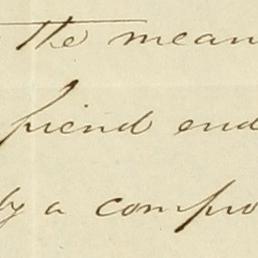 the mean
friend end
by a compro